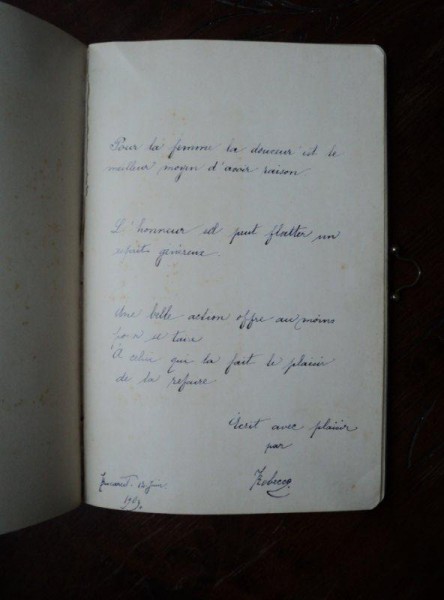 Pour la femme la douceur est le
meilleur moyen d'avoir raison
L'honneur peut flatter un
esprit généreux
Une belle action offre au moins
se taire
À celui qui la fait le plaisir
de la refaire
Écrit avec plaisir
par
Rebecca
12 Juin